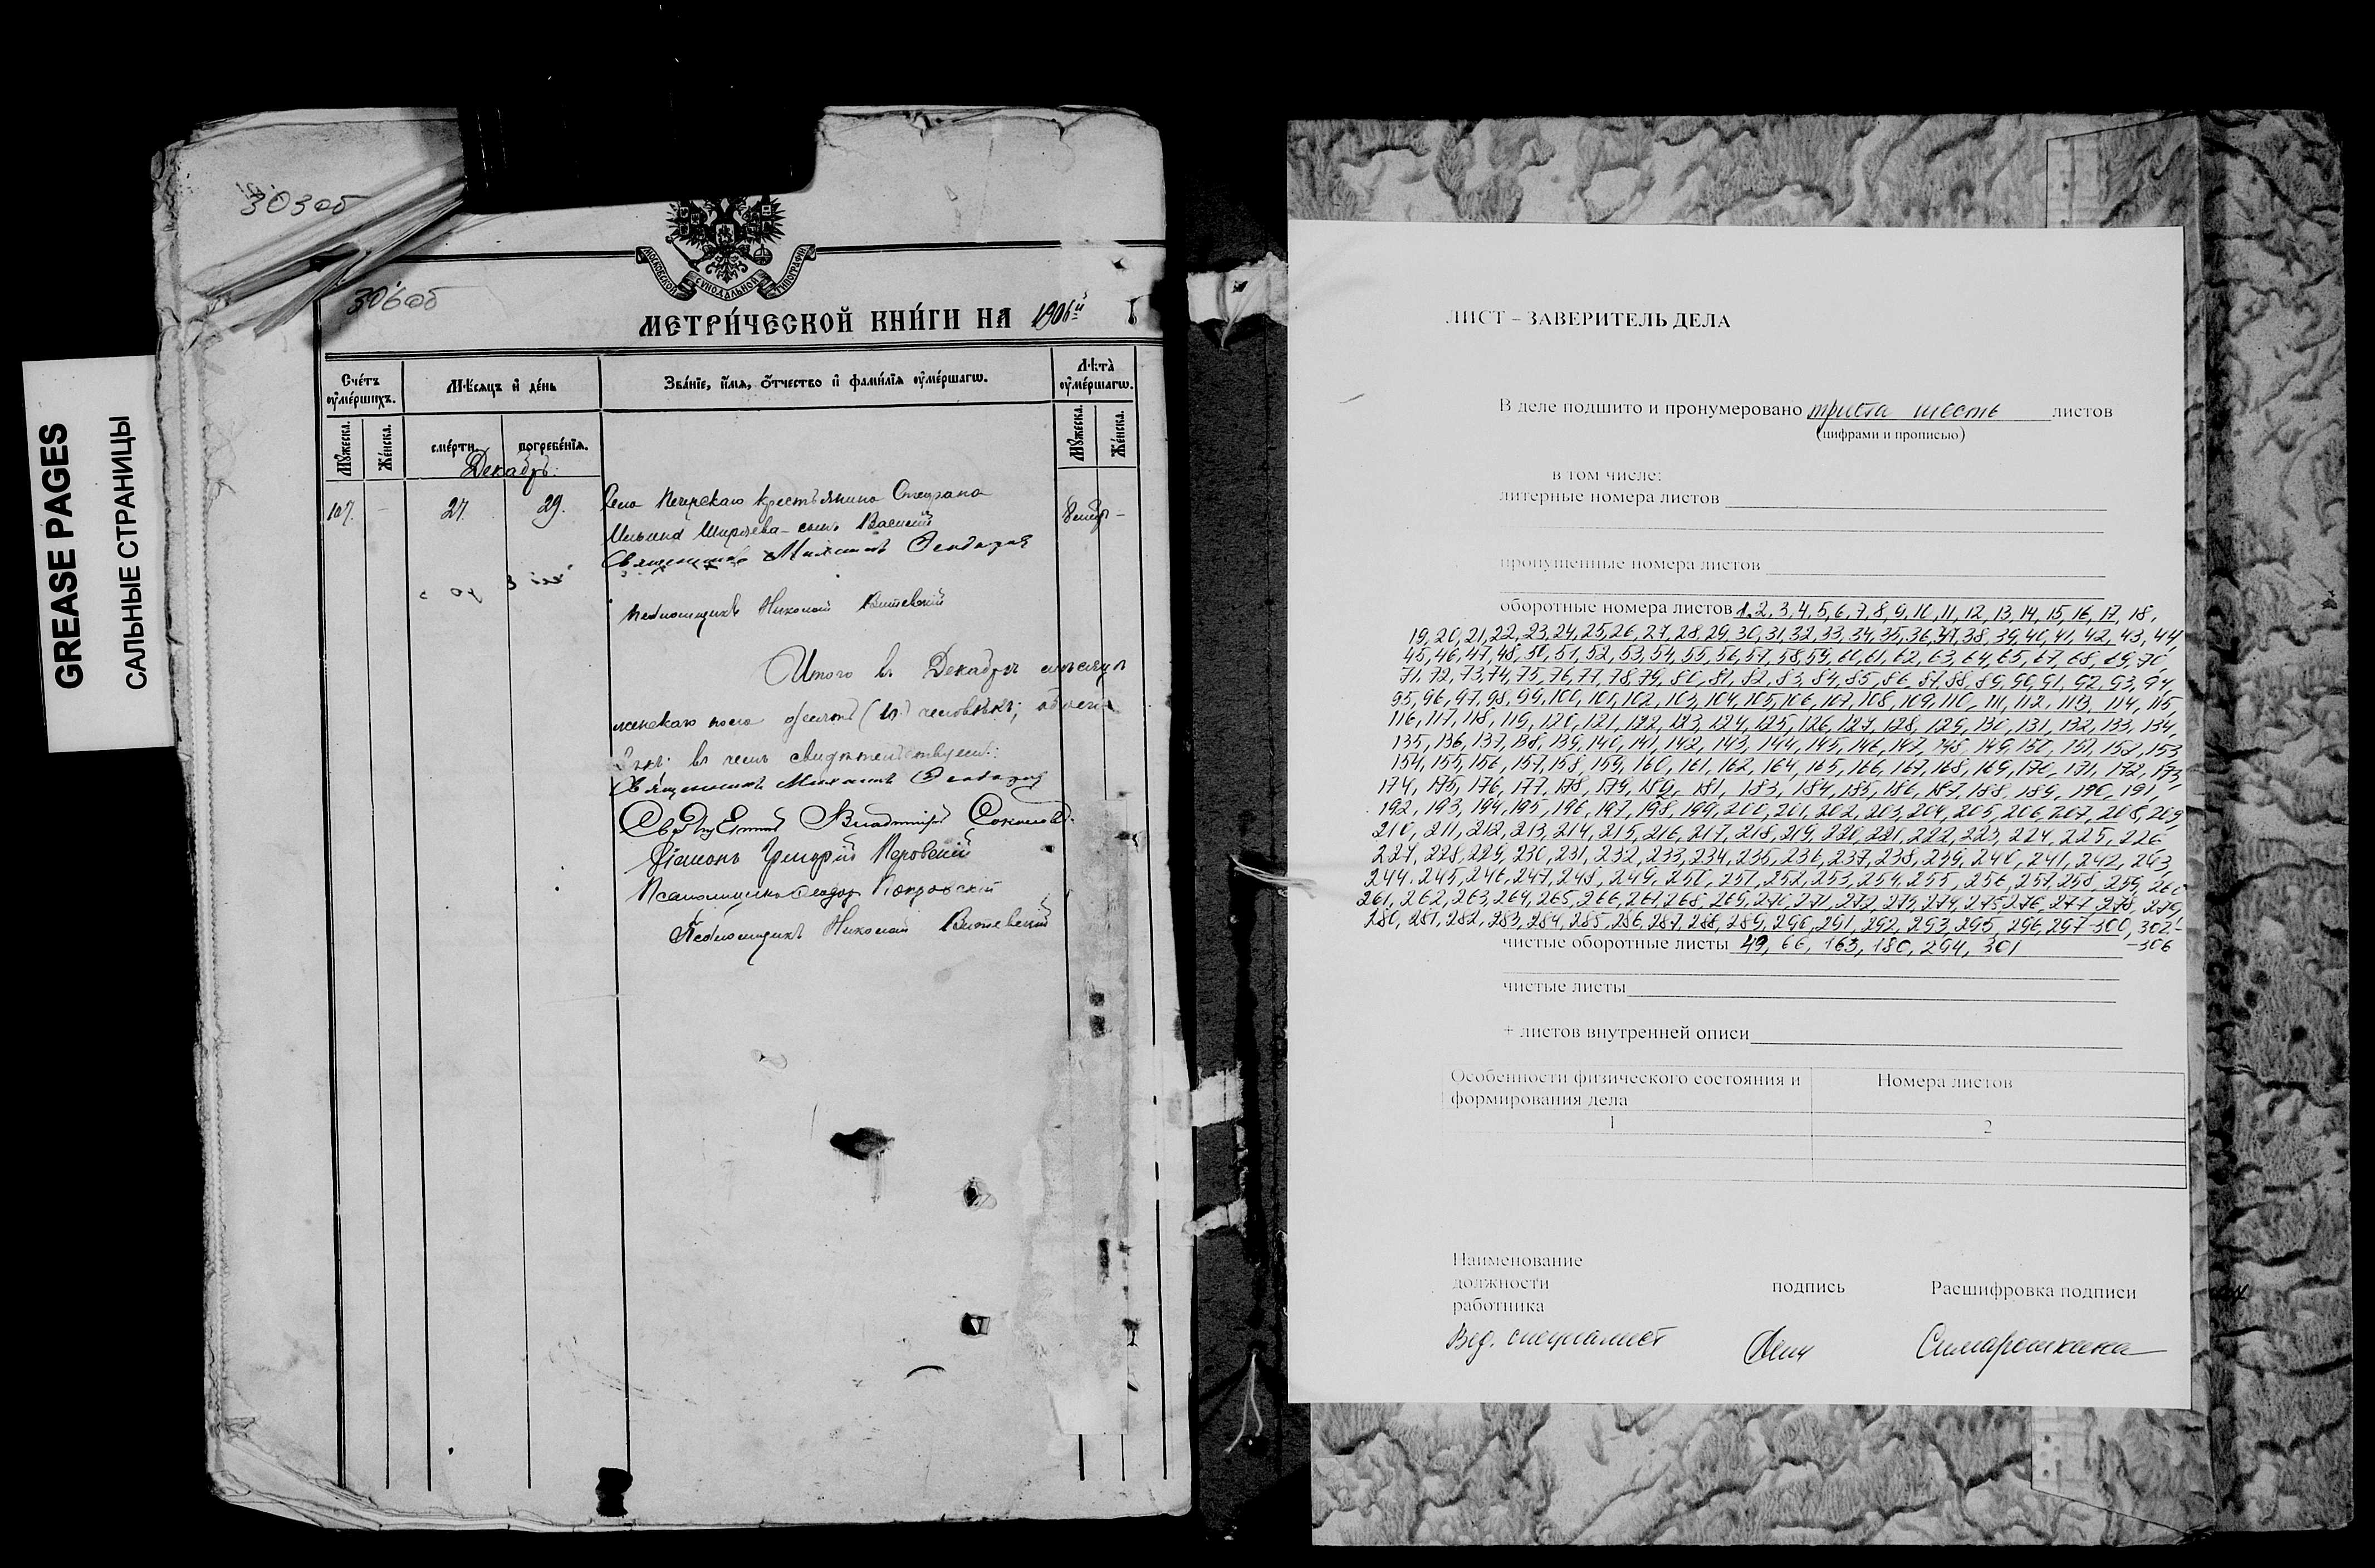 GREASE PAGES
САЛЬНЫЕ СТРАНИЦЫ
303об
306об
МОСКОВСКОЙ СѴНОДАЛЬНОЙ ТИПОГРАФІИ
МЕТРИ́ЧЕСКОЙ КНИ́ГИ НА 1906й
Сче́тъ ᲂу҆ме́ршихъ.
Мѣ́сяцъ и҆ де́нь
Зва́нїе, и҆́мѧ, ѻ҆́тчество и҆ фами́лїѧ ᲂу҆ме́ршагѡ.
Лѣ́та ᲂу҆ме́ршагѡ.
Мꙋ́жеска.
Же́нска.
сме́рти.
погребе́нїѧ.
Мꙋ́жеска.
Же́нска.
Декабрь.
107. - 27. 29. Села Печерскаго крестьянина Стефана
Ильина сынъ Василий
Священникъ Михаилъ
Псаломщикъ Николай Витевский
Итого въ Декабрѣ мѣсяцѣ
пола человѣкъ;
въ чемъ свидѣтельствуемъ:
Священникъ Михаилъ
Священникъ Владимиръ Соколовъ.
Діаконъ Григорій
Псаломщикъ Феодоръ Покровскій
Псаломщикъ Николай Витевский
ЛИСТ – ЗАВЕРИТЕЛЬ ДЕЛА
В деле подшито и пронумеровано триста шесть листов
(цифрами и прописью)
в том числе:
литерные номера листов
пропущенные номера листов
оборотные номера листов 1,2,3,4,5,6,7,8,9,10,11,12,13,14,15,16,17,18,
19,20,21,22,23,24,25,26,27,28,29,30,31,32,33,34,35,36,37,38,39,40,41,42,43,44,
45,46,47,48,50,51,52,53,54,55,56,57,58,59,60,61,62,63,64,65,67,68,69,70,
71,72,73,74,75,76,77,78,79,80,81,82,83,84,85,86,87,88,89,90,91,92,93,94,
95,96,97,98,99,100,101,102,103,104,105,106,107,108,109,110,111,112,113,114,115
116,117,118,119,120,121,122,123,124,125,126,127,128,129,130,131,132,133,134,
135,136,137,138,139,140,141,142,143,144,145,146,147,148,149,150,151,152,153,
154,155,156,157,158,159,160,161,162,164,165,166,167,168,169,170,171,172,173,
174,175,176,177,178,179,180,181,183,184,185,186,187,188,189,190,191,
192,193,194,195,196,197,198,199,200,201,202,203,204,205,206,207,208,209,
210,211,212,213,214,215,216,217,218,219,220,221,222,223,224,225,226
227,228,229,230,231,232,233,234,235,236,237,238,239,240,241,242,243,
244,245,246,247,248,249,250,251,252,253,254,255,256,257,258,259,260
261,262,263,264,265,266,267,268,269,270,271,272,273,274,275,276,277,278,279,
280,281,282,283,284,285,286,287,288,289,290,291,292,293,295,296,297-300,302-
-306
чистые оборотные листы 49, 66, 163, 180, 294, 301
чистые листы
+ листов внутренней описи
Особенности физического состояния и формирования дела
Номера листов
1
2
Наименование
должности
работника
подпись
Расшифровка подписи
Вед. специалист
Симарошкина